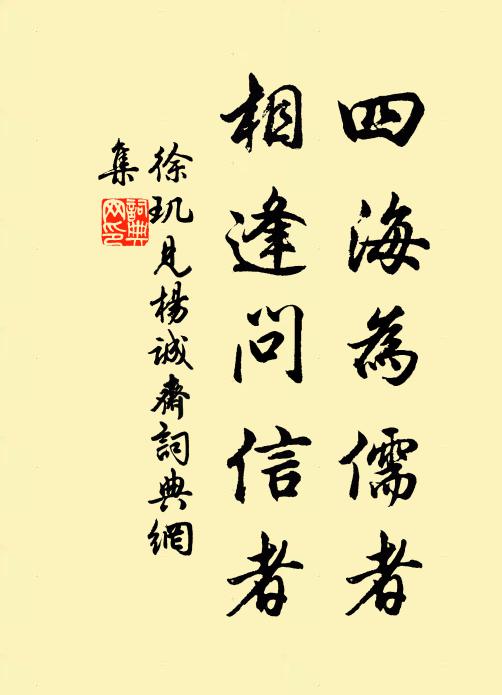 四海為儒者
相逢問信者
徐玑見楊诚齋詞典網
集
詞典
网印